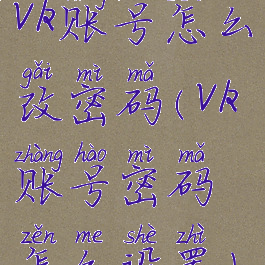 VK账号怎么
gǎi mì mǎ
改密码(VK
zhàng hào mì mǎ
账号密码
zěn me shè zhì
怎么设置)